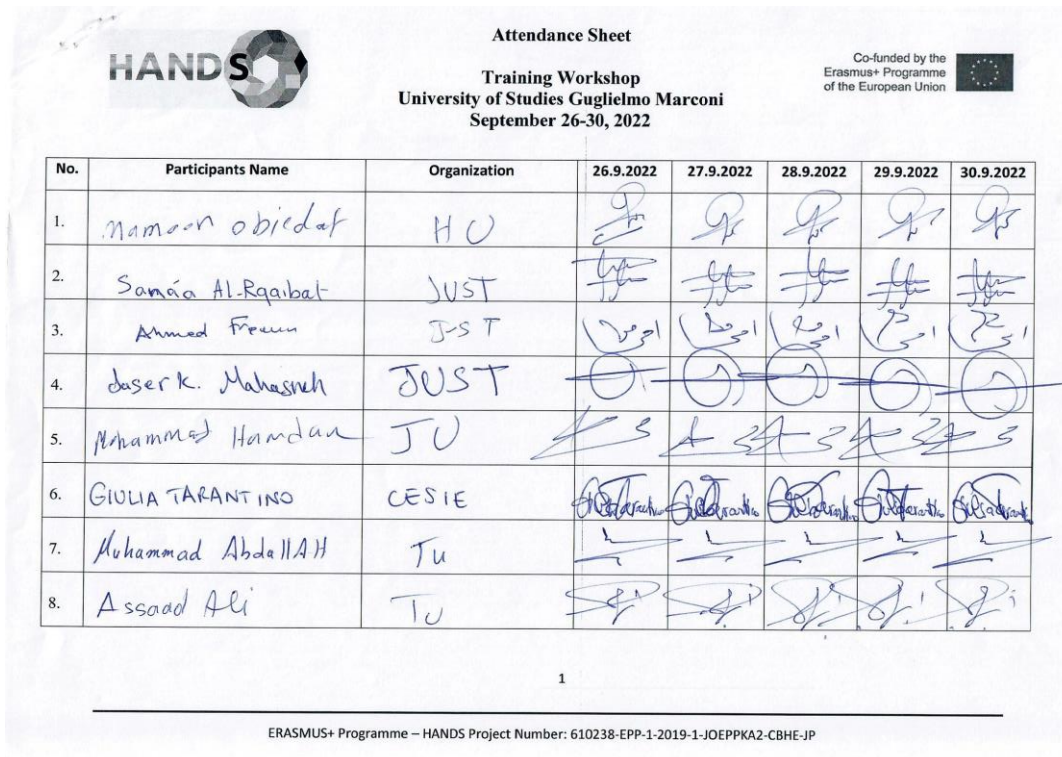 HANDS
Attendance Sheet
Training Workshop
University of Studies Guglielmo Marconi
September 26-30, 2022
Co-funded by the
Erasmus+ Programme
of the European Union
No. Participants Name Organization 26.9.2022 27.9.2022 28.9.2022 29.9.2022 30.9.2022
1. obiedat HU
2. Samáa Al-Rqaibat JUST
3. Ahmed
4. K. Mahasneh JUST
5. Mohammad Hamdan JU
6. GIULIA TARANTINO CESIE
7. Muhammad AbdallAH Tu
8. Assaad Ali TU
1
ERASMUS+ Programme – HANDS Project Number: 610238-EPP-1-2019-1-JOEPPKA2-CBHE-JP